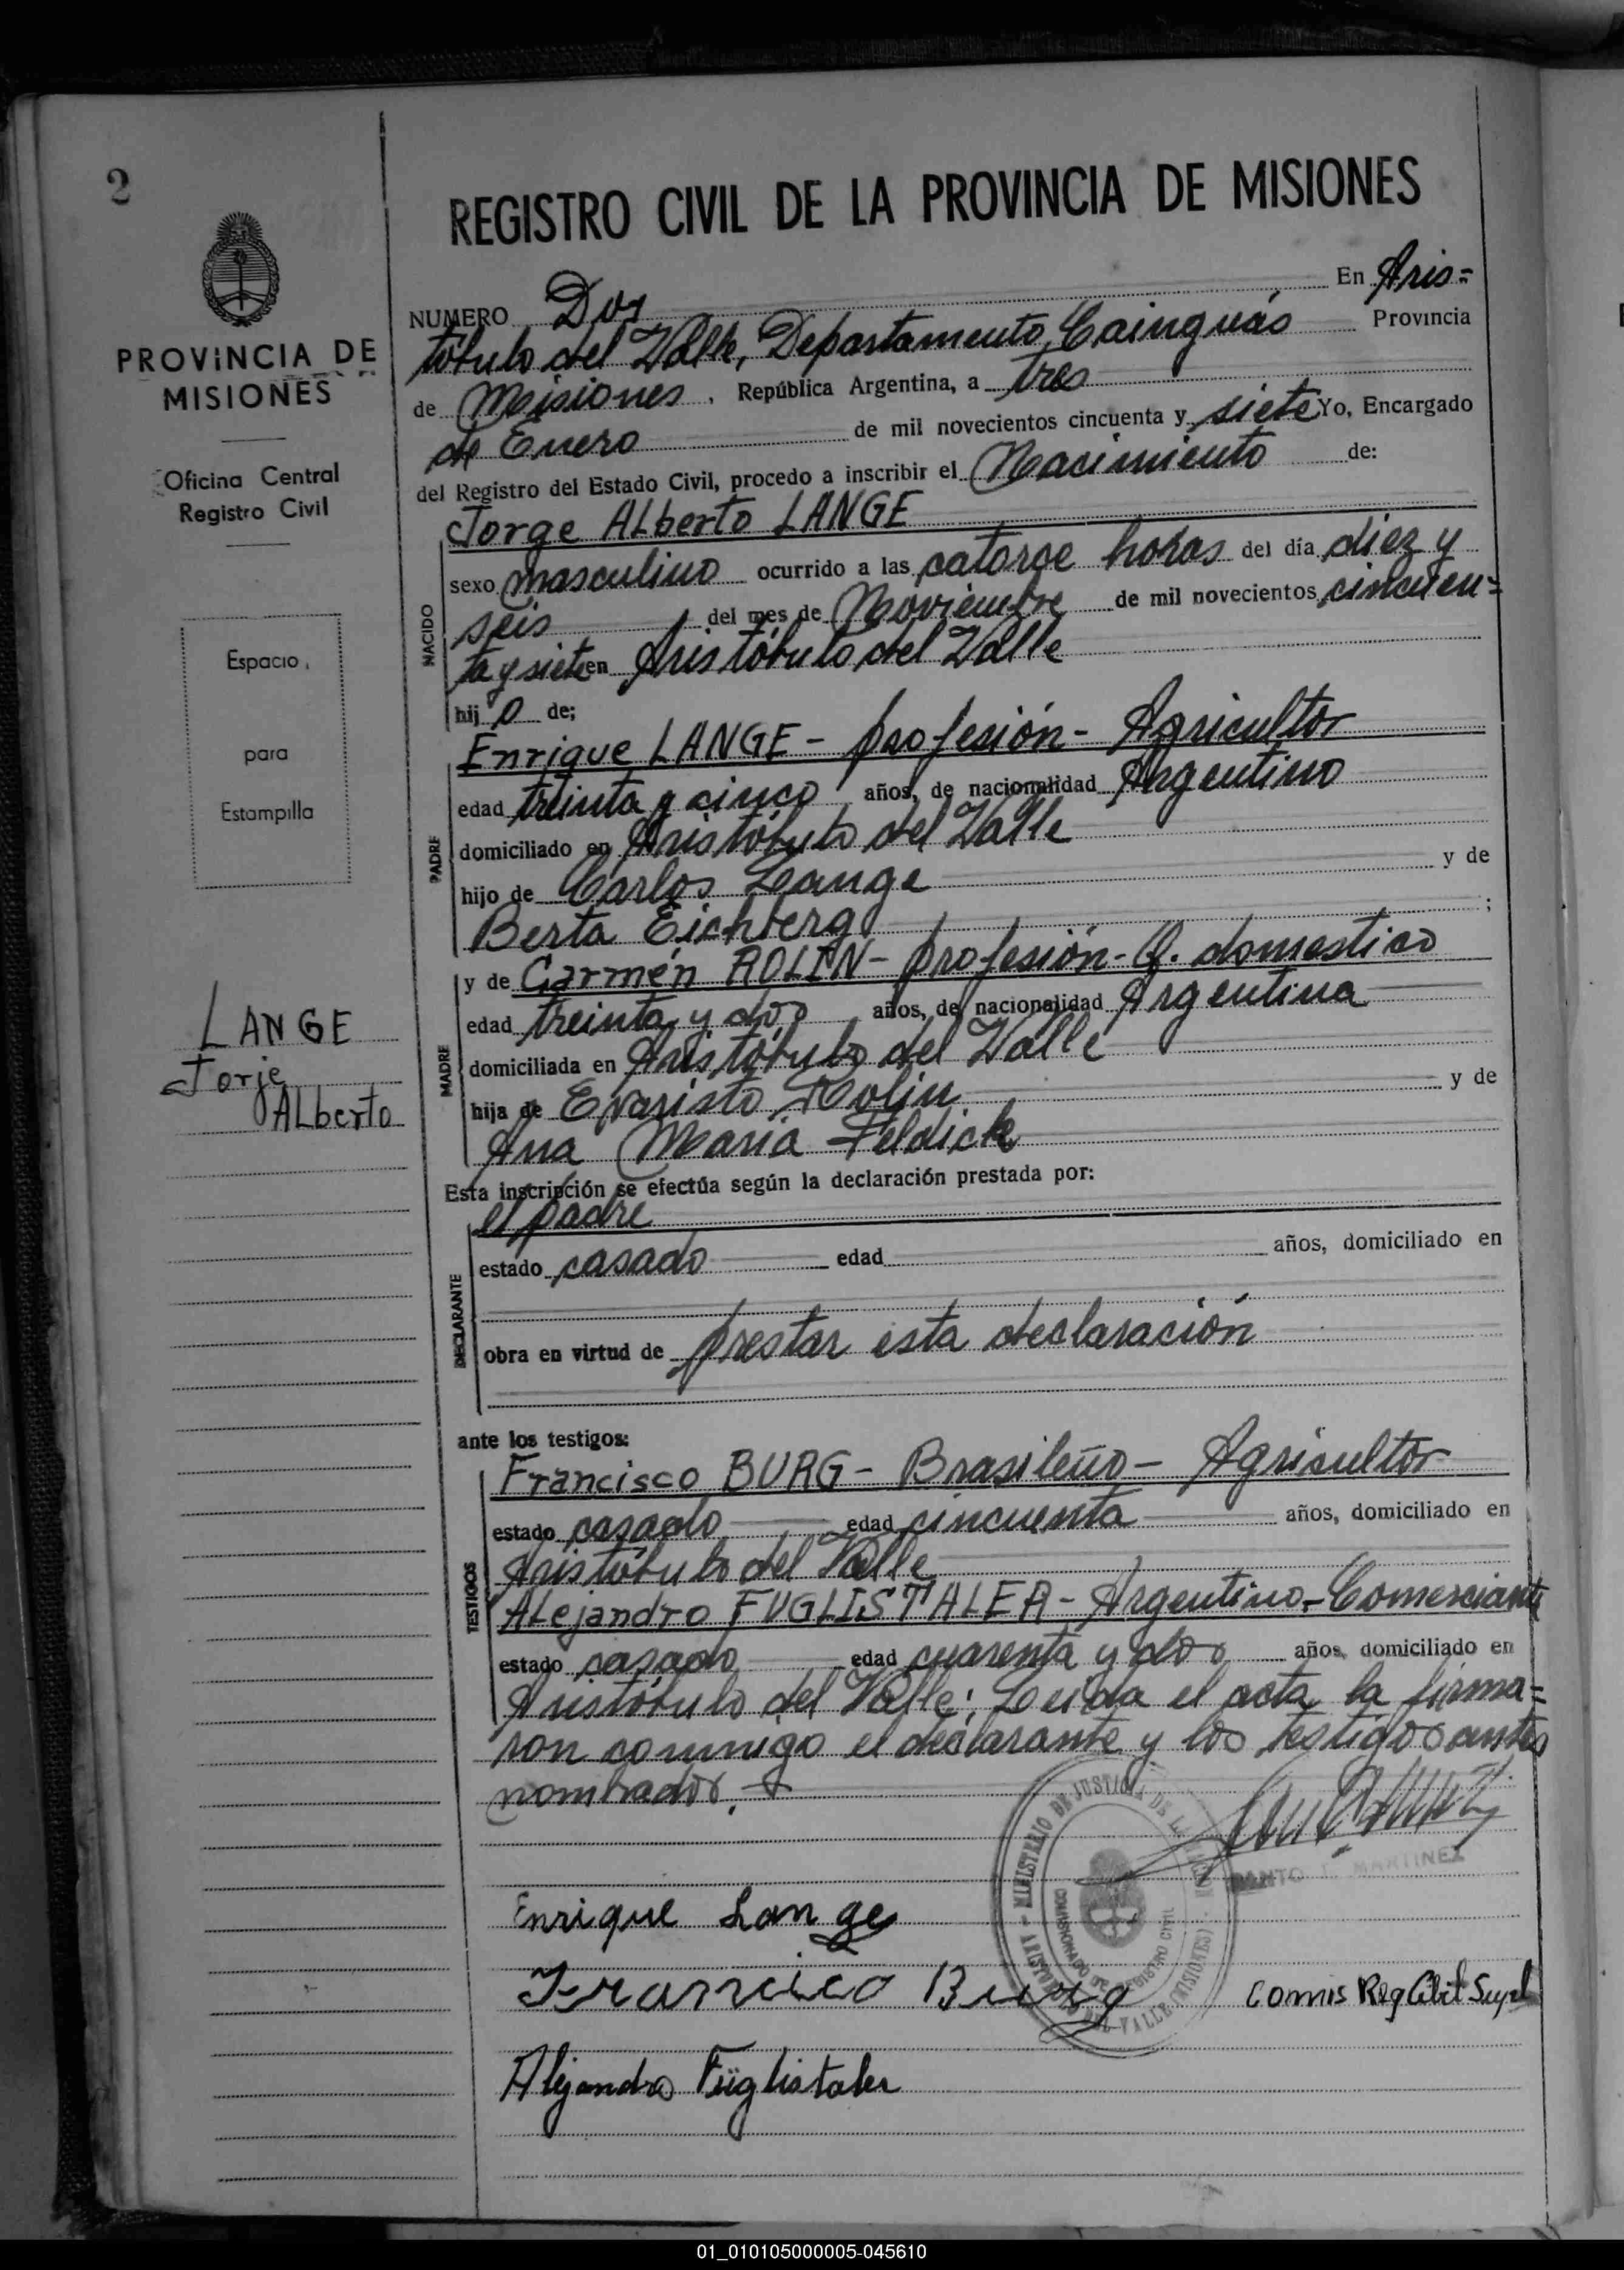 2
REGISTRO CIVIL DE LA PROVINCIA DE MISIONES
PROVINCIA DE
MISIONES
Oficina Central
Registro Civil
Espacio
para
Estampilla
LANGE
Jorje
ALberto
NUMERO Dos En Aris=
tóbulo del Valle, Departamento Cainguás Provincia
de Misiones, República Argentina, a tres
de Enero de mil novecientos cincuenta y siete Yo, Encargado
del Registro del Estado Civil, procedo a inscribir el Nacimiento de:
NACIDO
Jorge ALberto LANGE
sexo masculino ocurrido a las catorce horas del día diez y
seis del mes de Noviembre de mil novecientos cincuen=
ta y siete en Aristóbulo del Valle
hij o de;
PADRE
Enrique LANGE - profesión - Agricultor
edad treinta y cinco años, de nacionalidad Argentino
domiciliado en Aristóbulo del Valle
hijo de Carlos Lange y de
Berta Eichberg ;
MADRE
y de Carmén ROLIN - profesión - Q. domestico
edad treinta y dos años, de nacionalidad Argentina
domiciliada en Aristóbulo del Valle
hija de Evaristo Rolin y de
Ana Maria Feldick
Esta inscripción se efectúa según la declaración prestada por:
DECLARANTE
el padre
estado casado edad años, domiciliado en
obra en virtud de prestar esta declaración
ante los testigos:
TESTIGOS
Francisco BURG - Brasileño - Agricultor
estado casado edad cincuenta años, domiciliado en
Aristóbulo del Valle
ALejandro FUGLISTALER - Argentino - Comerciante
estado casado edad cuarenta y dos años, domiciliado en
Aristóbulo del Valle; Leida el acta la firma=
ron conmigo el declarante y los testigos antes
nombrados.
MINISTERIO DE JUSTICIA DE LA
ARISTOBULO DEL VALLE (MISIONES)
COMISIONADO DE REGISTRO CIVIL
MARTINEZ
Enrique Lange
Francisco Burg
Comis Reg Cibil Supl
Alejandro Füglistaler
01_010105000005-045610